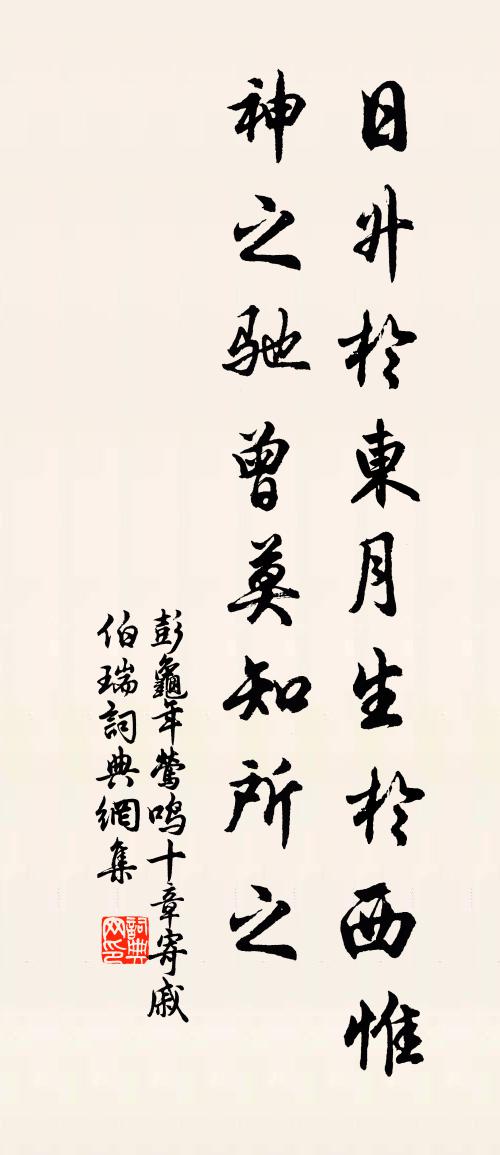 日升於東月生於西惟
神之馳曾莫知所之
彭龜年鶯鳴十章寄戚
伯瑞詞典網集
詞典网印